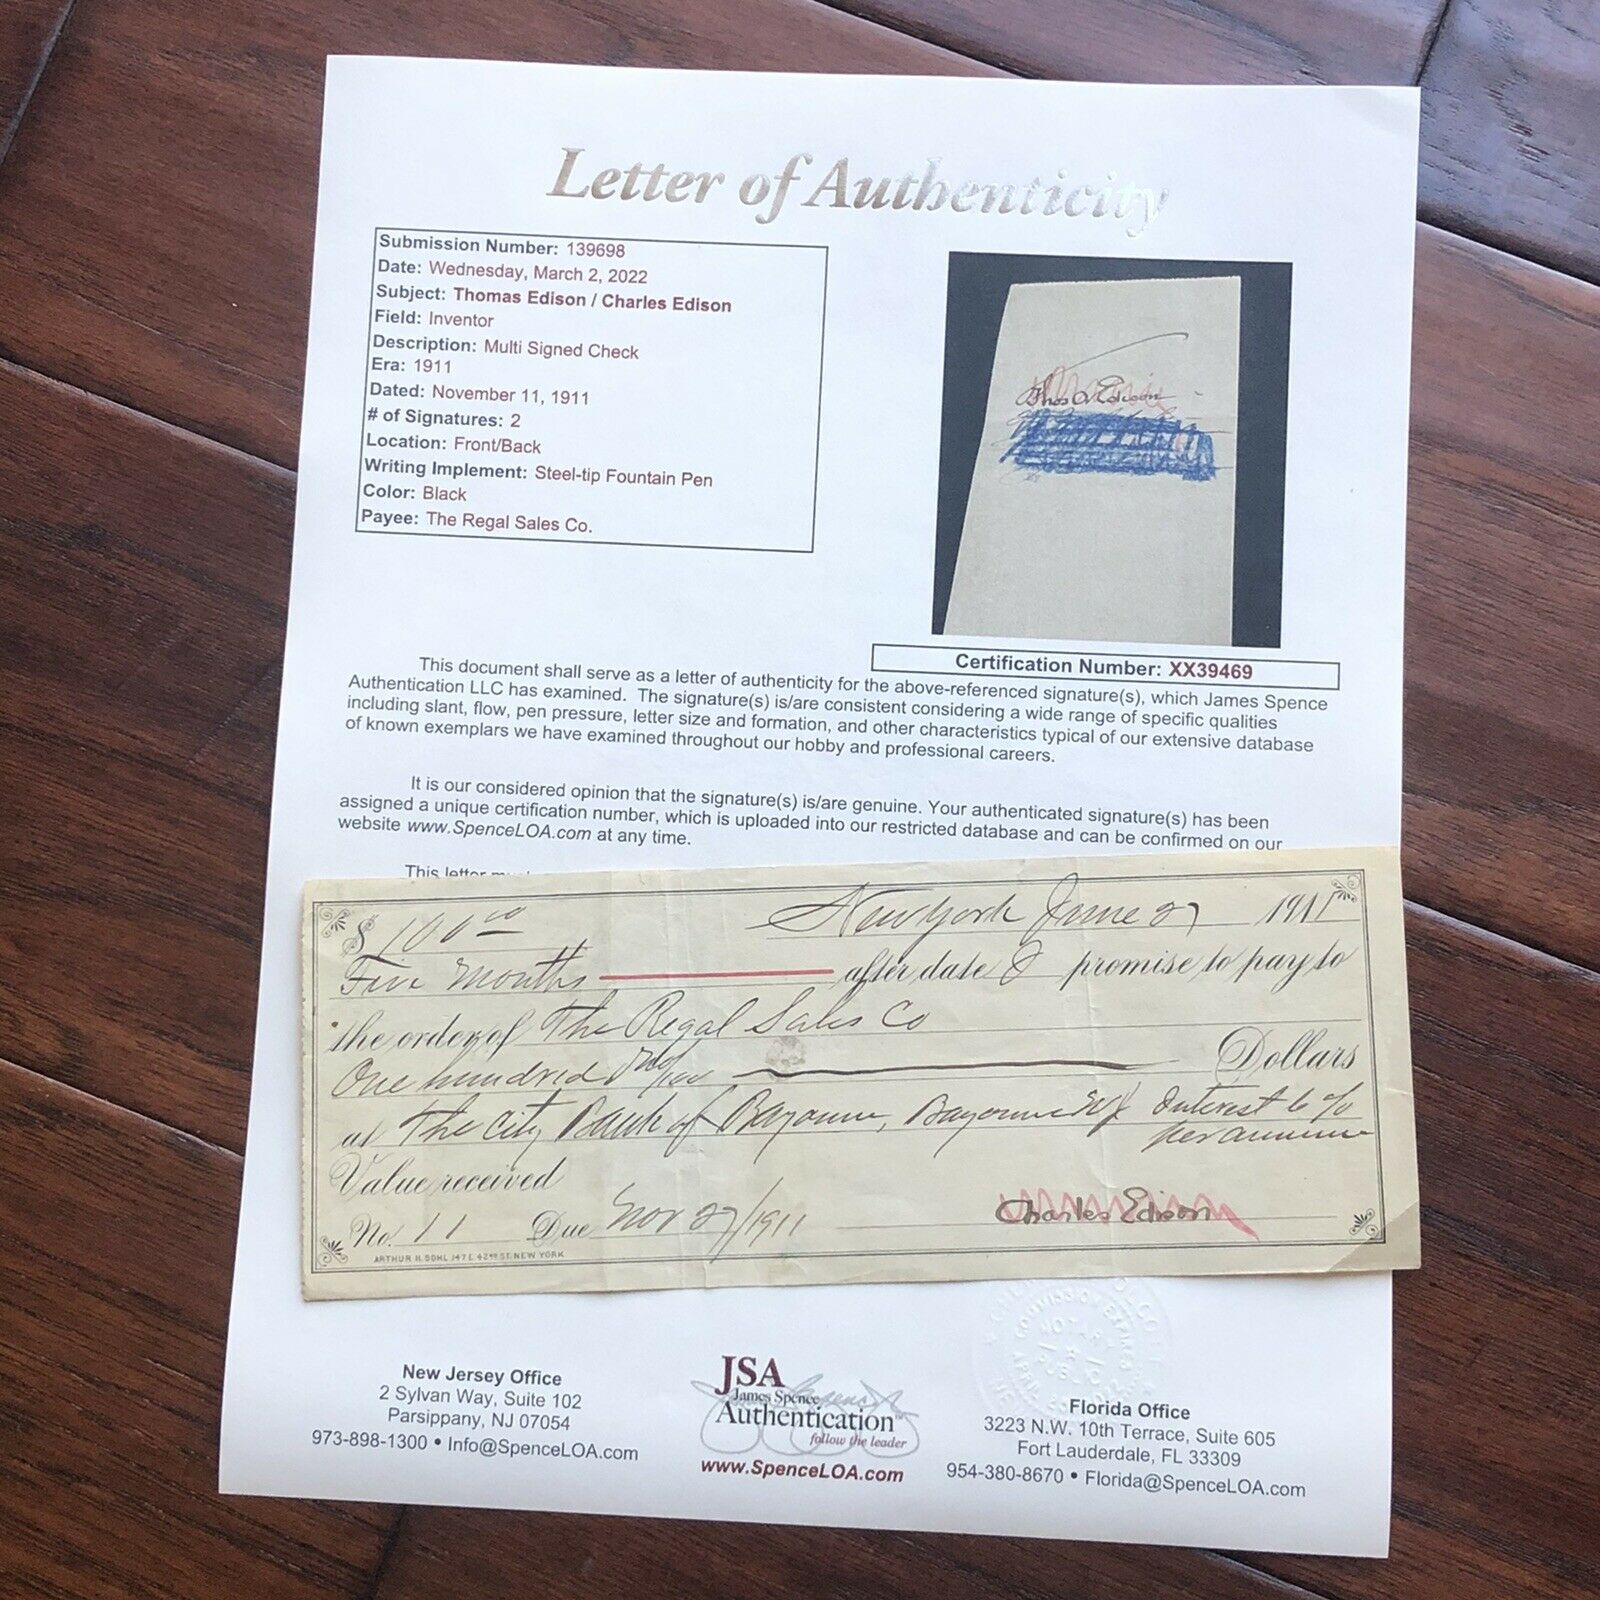 Letter of Authenticity
Submission Number: 139698
Date: Wednesday, March 2, 2022
Subject: Thomas Edison / Charles Edison
Field: Inventor
Description: Multi Signed Check
Era: 1911
Dated: November 11, 1911
# of Signatures: 2
Location: Front/Back
Writing Implement: Steel-tip Fountain Pen
Color: Black
Payee: The Regal Sales Co.
Thos A Edison
Certification Number: XX39469
This document shall serve as a letter of authenticity for the above-referenced signature(s), which James Spence
Authentication LLC has examined. The signature(s) is/are consistent considering a wide range of specific qualities
including slant, flow, pen pressure, letter size and formation, and other characteristics typical of our extensive database
of known exemplars we have examined throughout our hobby and professional careers.
It is our considered opinion that the signature(s) is/are genuine. Your authenticated signature(s) has been
assigned a unique certification number, which is uploaded into our restricted database and can be confirmed on our
website www.SpenceLOA.com at any time.
This letter
$ 100 00 New York June 27 1911
Five Months after date I promise to pay to
the order of The Regal Sales Co
One hundred no/100 Dollars
at The City Bank of Bayonne, Bayonne NJ Interest 6 %
per annum
Value received
No. 11 Due Nov 27/1911 Charles Edison
ARTHUR H. SOHL 147 E. 42ND ST. NEW YORK
New Jersey Office
2 Sylvan Way, Suite 102
Parsippany, NJ 07054
973-898-1300 • Info@SpenceLOA.com
JSA
James Spence
Authentication
follow the leader
www.SpenceLOA.com
Florida Office
3223 N.W. 10th Terrace, Suite 605
Fort Lauderdale, FL 33309
954-380-8670 • Florida@SpenceLOA.com